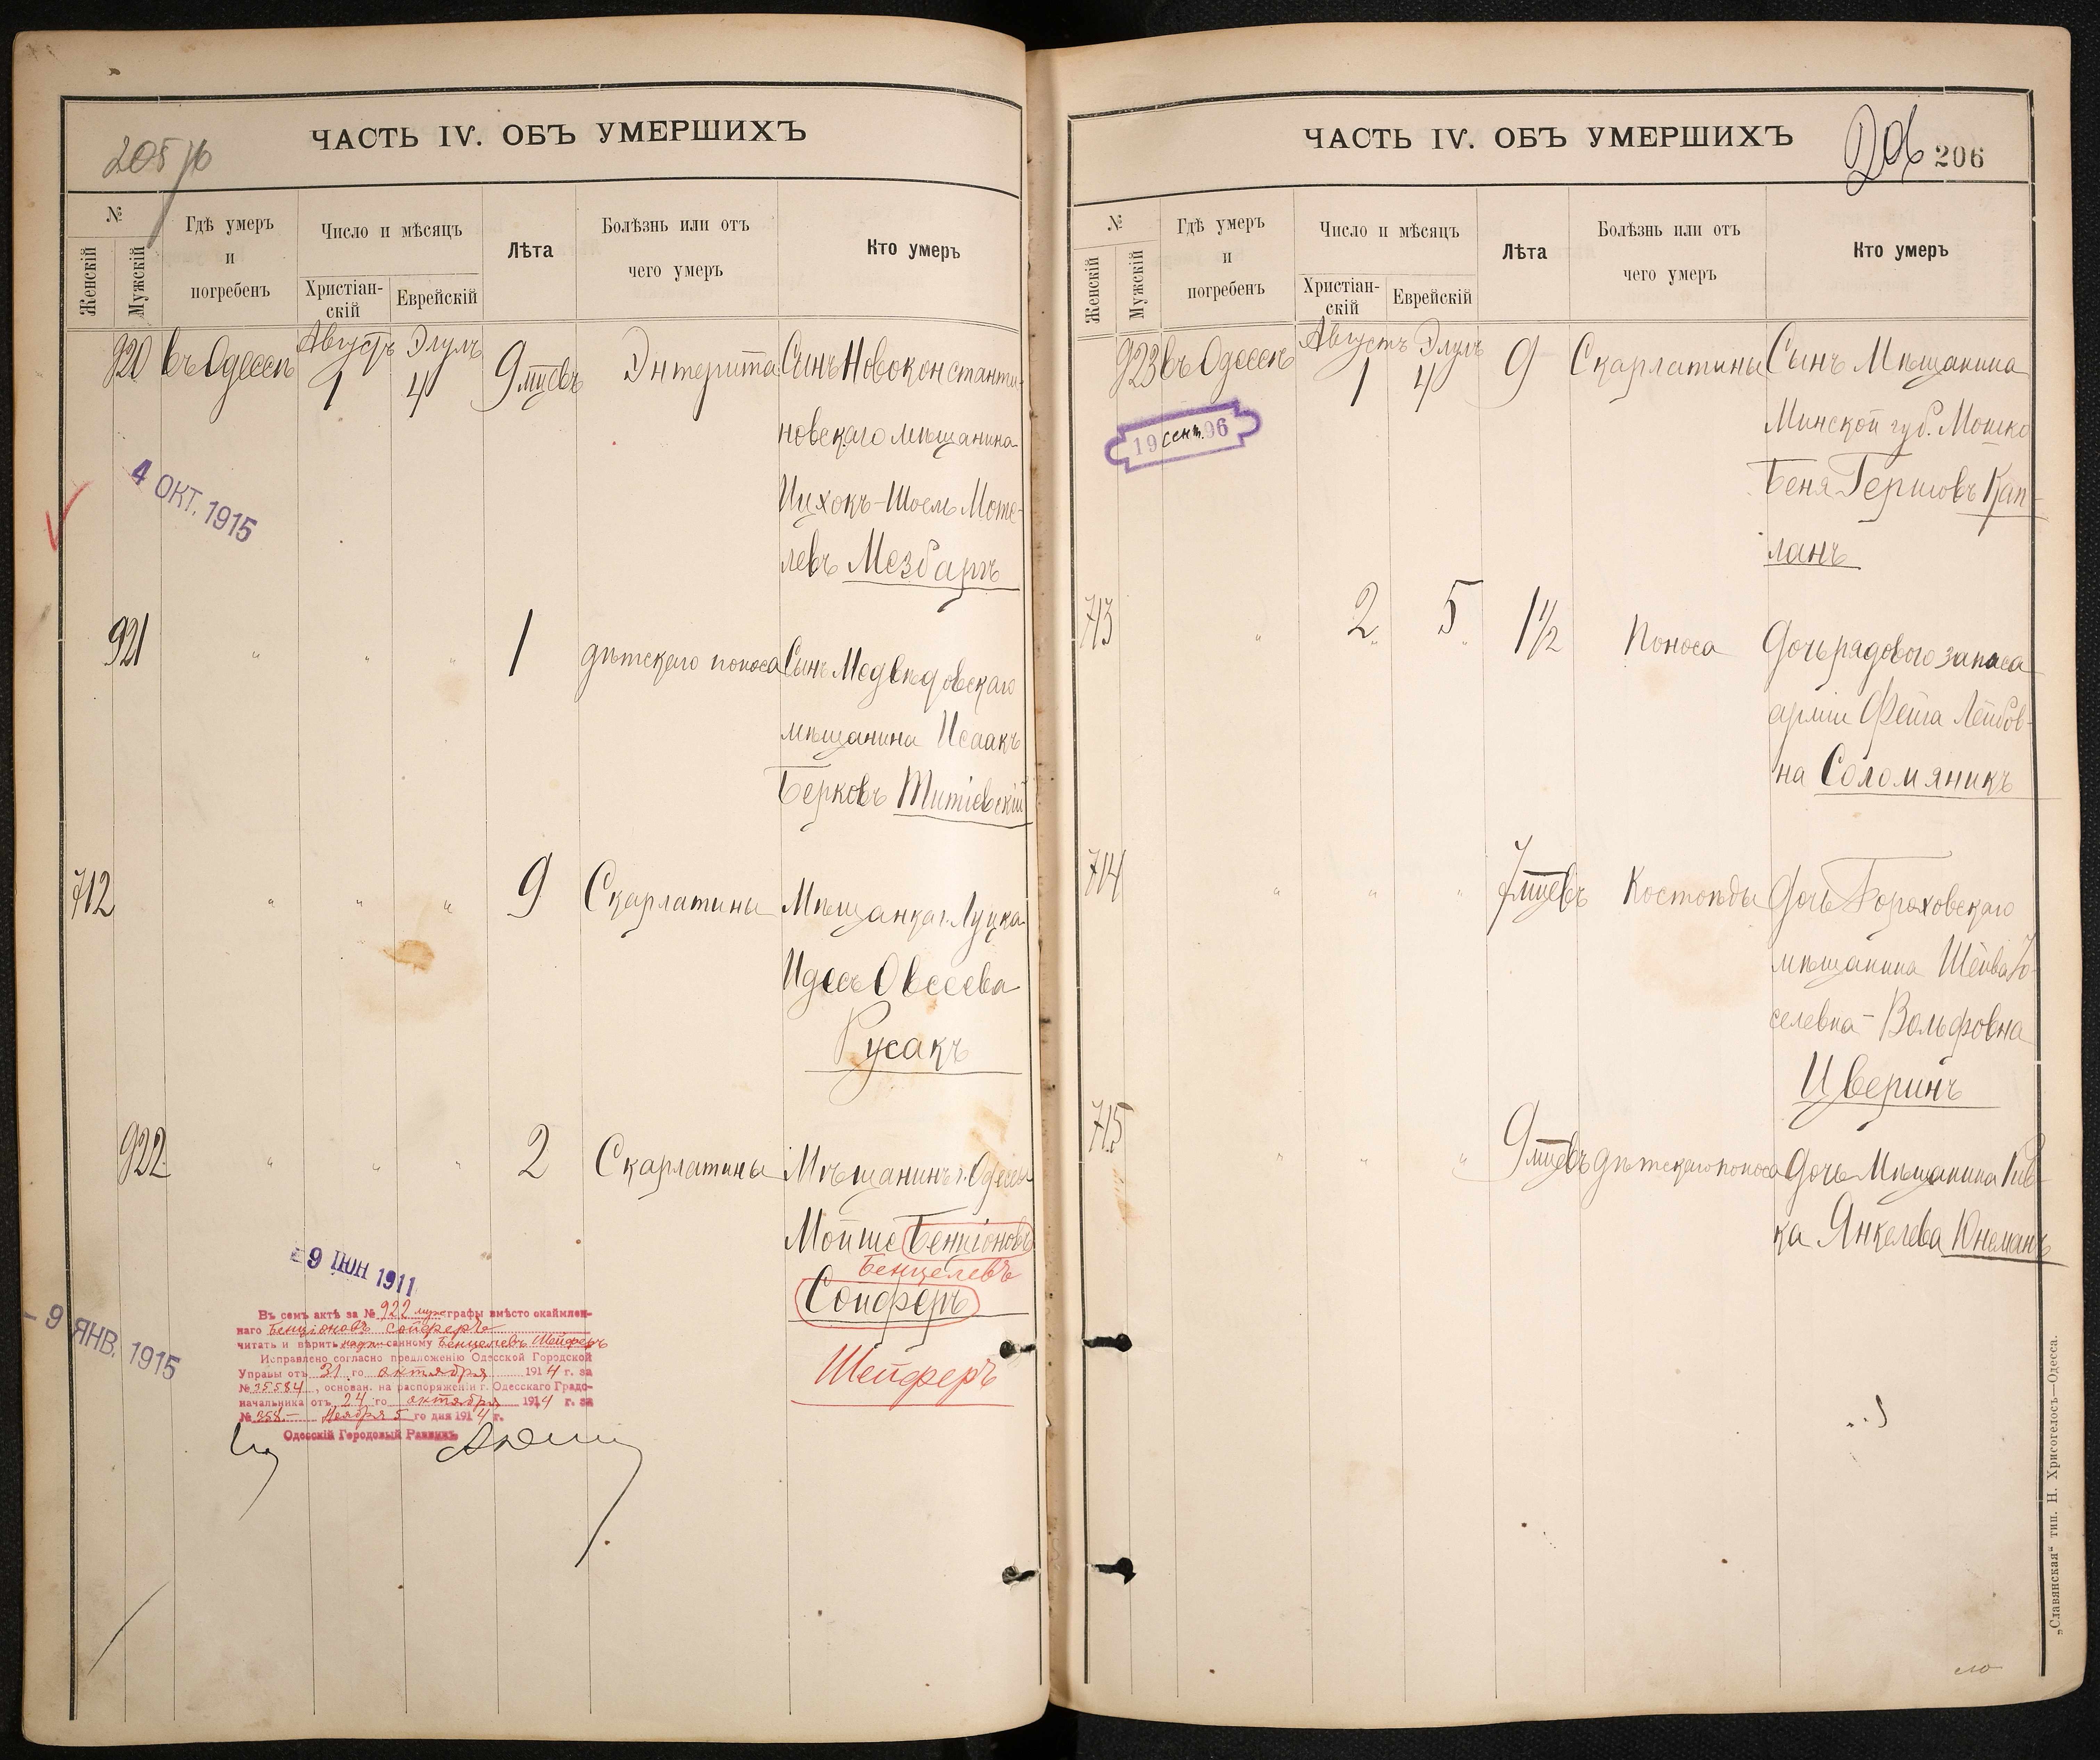 ЧАСТЬ IV. ОБЪ УМЕРШИХЪ
205
№
Женскій
Мужскій
Гдѣ умеръ
и
погребенъ
Число и мѣсяцъ
Христіан-
скій
Еврейскій
Лѣта
Болѣзнь или отъ
чего умеръ
Кто умеръ
920 въ Одессѣ Августъ 1 Элулъ 4 9 мцевъ Энтерита Сынъ Новоконстанти-
новскаго мѣщанина
Ицхокъ-Шоель Моте-
левъ Мезбаргъ
4 ОКТ. 1915
921 " " " 1 дѣтскаго поноса Сынъ Медвѣдовскаго
мѣщанина Исаакъ
Берковъ Титіевскій
712 " " " 9 Скарлатины Мѣщанка г. Луцка
Идесъ Овсеева
Русакъ
922 " " " 2 Скарлатины Мѣщанинъ г. Одессы
Мойше Бенціоновъ
Бенцелевъ
Сойферъ
Шейферъ
9 ІЮН 1911
- 9 ЯНВ. 1915
Въ семъ актѣ за № 922 муж графы вмѣсто окаймлен-
наго Бенціоновъ Сойферъ
читать и вѣрить надписанному Бенцелевъ Шейферъ
Исправлено согласно предложенію Одесской Городской
Управы отъ 31 го октября 1914 г. за
№ 35584, основан. на распоряженіи г. Одесскаго Градо-
начальника отъ 24 го октября 1914 г. за
№ 358- Ноября 5 го дня 1914 г.
Одесскій Городовый Раввинъ
ЧАСТЬ IV. ОБЪ УМЕРШИХЪ
206 206
№
Женскій
Мужскій
Гдѣ умеръ
и
погребенъ
Число и мѣсяцъ
Христіан-
скій
Еврейскій
Лѣта
Болѣзнь или отъ
чего умеръ
Кто умеръ
923 въ Одессѣ Августъ 1 Элулъ 4 9 Скарлатины Сынъ Мѣщанина
Минской губ. Мошко
Беня Гершовъ Кап-
ланъ
19 сент. 96
713 " 2 5 1 1/2 Поноса Дочь рядового запаса
арміи Фейга Лейбов-
на Соломяникъ
714 " " " 7 мцевъ Костоѣды Дочь Гороховскаго
мѣщанина Шейва Іо-
селевна-Вольфовна
Цверинъ
715 " " " 9 мцевъ дѣтскаго поноса Дочь Мѣщанина Рив-
ка Янкелева Юнсманъ
„Славянская“ тип. Н. Хрисогелосъ—Одесса.